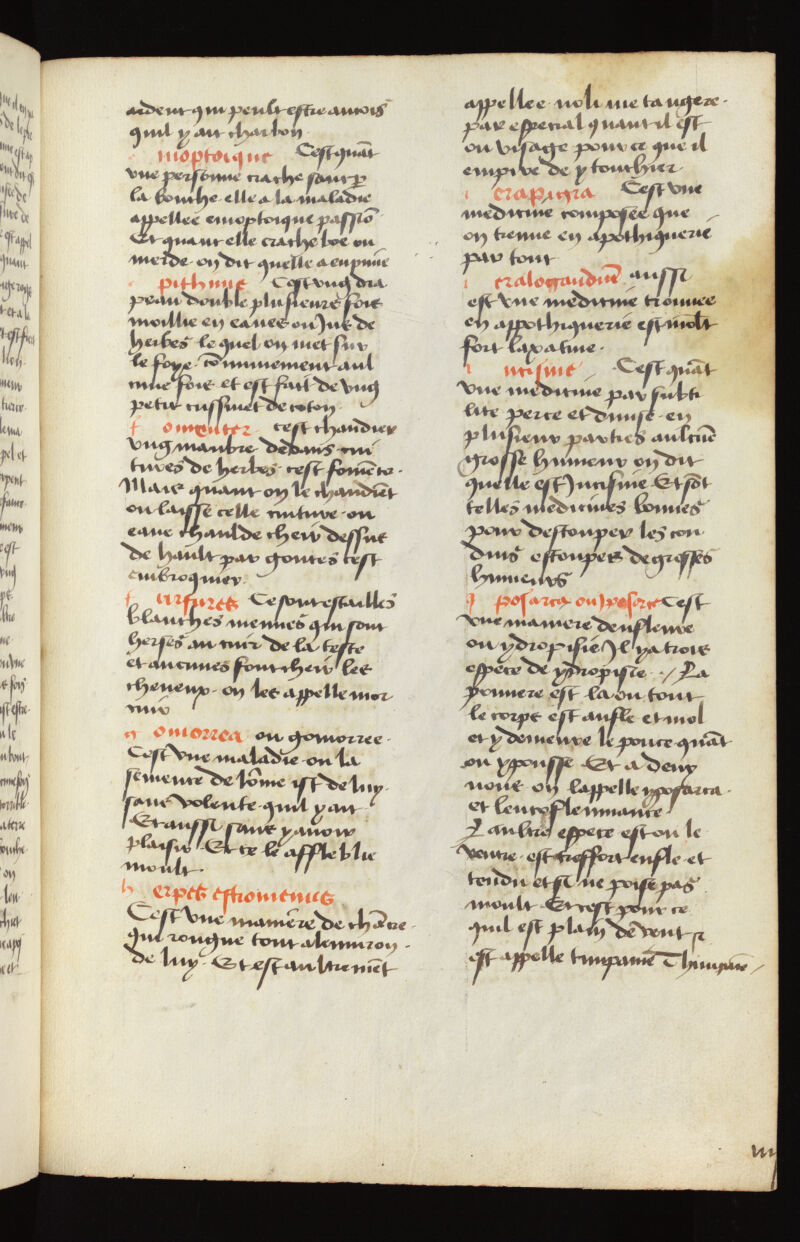 ardent qui peult estre aincois
quil y ait charbon
moptoique Cest quāt
vne personne crache sanc p̱
la bouche elle a la maladie
appellee emoptoique passiō
Et quant elle crache boe ou
merde on dit quelle a enpime
pithime Cest vng dra
peau double plusieurs fois
moillie en eaues ou Jus de
herbes le quel on met sur
le foye Cōmunement aul
cune fois et est fait de vng
petit cussinet de coton
f omenter cest chaudier
vng manbre dedans cui
tures de herbes cest fomēte
Mais quant on le chaudiēt
on laisse celle cuiture ou
eaue chaulde cheir dessus
de hault par goutes cest
embroquier
f urfures Ce sont escailles
blanches menues qui sont
herses au cuir de la teste
et aucunes font cheir les
cheueux on les appelle mor
cuir
g omorrea ou gomorree
Cest vne maladie ou la
semence de lōme ist de luy
sans volente quil y ait
Et aussi sans y auoir
plaisir Et ce le affleblie
moult
h erpes estiomenus
Cest vne maniere de chācre
qui rongue tout alenuiron
de luy Et est aultremēt
appellee noli me tangere
par especial quant il est
ou visage pour ce que il
empire de y touchier
i erapigra Cest vne
medicine composee que
on tienne en apothiquerie
par tout
i eralogaudinē aussi
est vne medicine trouuee
en appothiquerie est molt
fort laxatiue
i ncisiue Cest quāt
vne medicine par subti
lite perce et diuise en
plusieur parties aulcūe
grosse humeur on dit
quelle est Jncisiue Et sōt
telles medicines bonnes
pour destouper les con
duis estoupes de grosses
humeurs
J posarca ou yposarce Cest
vne maniere denfleure
ou ydropisie Jl y a trois
espece de ydropisie La
primiere est la ou tout
le corps est anfle et mol
et y demeure le pouce quāt
on y pousse Et a deux
nons on lappelle yposarca
et leucoflemance
Laultre espece est ou le
ventre est tresfort enfle et
tendu et si ne poise pas
moult Et cest pour ce
quil est plain de vent
est appelle timpanite